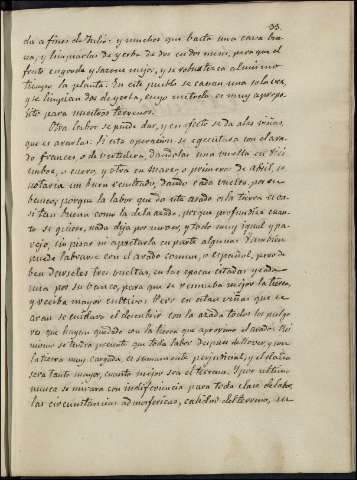 33.
da a fines de Julio: y muchos que basta una cava bue-
na, y limpiarlas de yerba de dos en dos meses, para que el
fruto engorde y sazone mejor, y se robustezca al mismo
tiempo la planta. En este pueblo se cavan una sola vez,
y se limpian dos de yerba, cuyo método es muy apropo-
sito para nuestros terrenos.
Otra labor se puede dar, y en efecto se da a las viñas,
que es ararlas. Si esta operacion se egecutara con el ara-
do frances, o de vertedera, dandolas una vuelta en Dici-
embre, o enero, y otra en Marzo, o primeros de Abril, se
notaria un buen resultado, dando cada vuelta, por su
banco, porque la labor que da este arado a la tierra es ca-
si tan buena como la de la azada, porque profundiza cuan-
to se quiere, nada deja por mover, y todo muy igual y pa-
rejo, sin pisar ni apretarla en parte alguna. Tambien
puede labrarse con el arado comun, o español, pero de-
ben darseles tres vueltas, en las epocas citadas y cada
una por su banco, para que se remueba mejor la tierra,
y reciba mayor cultivo. Pero en estas viñas que se
aran se cuidara el descubrir con la azada todos los pulga-
res que hayan quedado con la tierra que aproximo el arado. Asi
mismo se tendra presente que toda labor despues de llover, y con
la tierra muy cargada, es sumamente perjudicial, y el daño
sera tanto mayor, cuanto mejor sea el terreno. Y por ultimo
nunca se mirara con indiferencia para toda clase de labor,
las circunstancias admosfericas, calidad del terreno, su